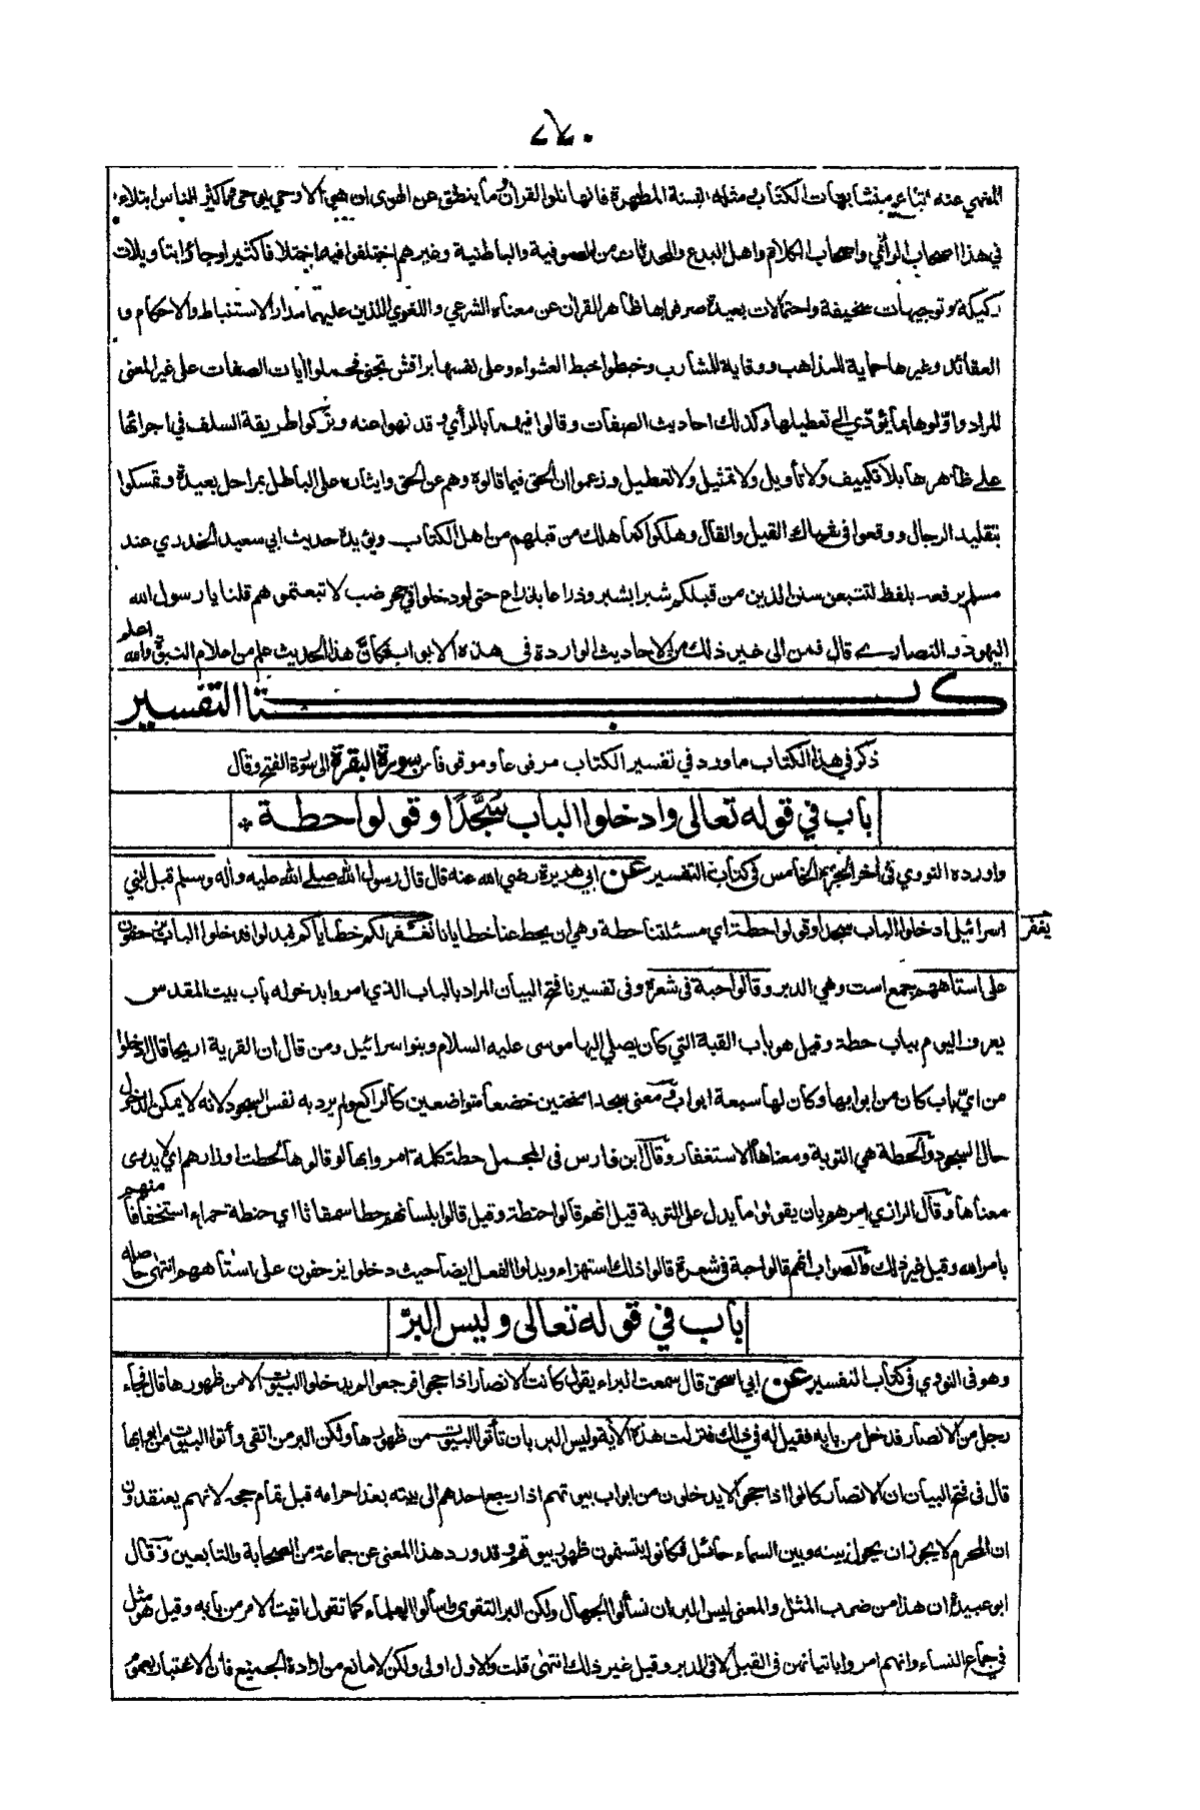 ٧٤٠
المنهي عنه اتباع متشابهات الكتاب مثله السنة المطهرة فانها تلو القرآن وما ينطق عن الهوى ان هي الا وحي يوحى فما اكثر الناس ابتلاء
في هذا اصحاب الرأي واصحاب الكلام واهل البدع والمحدثات من الصوفية والباطنية وغيرهم اختلفوا فيها اختلافا كثيرا وجاؤا بتأويلات
ركيكة وتوجيهات سخيفة واحتمالات بعيدة صرفوا بها ظاهر القرآن عن معناه الشرعي واللغوي اللذين عليهما مدار الاستنباط والاحكام و
العقائد وغيرها حماية للمذاهب ووقاية للمشارب وخبطوا خبط العشواء وعلى نفسها براقش تجني فحملوا آيات الصفات على غير المعنى
المراد واوّلوها بما يؤدّي الى تعطيلها وكذلك احاديث الصفات وقالوا فيهما بالرأي وقد نهوا عنه وتركوا طريقة السلف في اجرائها
على ظاهرها بلا تكييف ولا تأويل ولا تمثيل ولا تعطيل وزعموا ان الحق فيما قالوه وهم عن الحق وايثاره على الباطل بمراحل بعيدة وتمسكوا
بتقليد الرجال ووقعوا في القيل والقال وهلكوا كما هلك من قبلهم من اهل الكتاب ويؤيده حديث ابي سعيد الخدري عند
مسلم يرفعه بلفظ لتتبعن سنن الذين من قبلكم شبرا بشبر وذراعا بذراع حتى لو دخلوا في جحر ضب لاتبعتموهم قلنا يا رسول الله
اليهود والنصارى قال فمن الى غير ذلك من الاحاديث الواردة في هذه الابواب فكان هذا الحديث علم من اعلام النبوة والله اعلم
كتاب التفسير
ذكر في هذا الكتاب ما ورد في تفسير الكتاب مرفوعا وموقوفا من سورة البقرة الى سورة الفتح وقال
باب في قوله تعالى وادخلوا الباب سُجَّدًا وقولوا حطة *
واورده النووي في آخر الجزء الخامس في كتاب التفسير عن ابي هريرة رضي الله عنه قال قال رسول الله صلى الله عليه وآله وسلم قيل لبني
اسرائيل ادخلوا الباب سجدا وقولوا حطة اي مسئلتنا حطة وهي ان يحط عنا خطايانا نغفر لكم خطاياكم فبدلوا فدخلوا الباب يزحفون
يغفر
على استاههم جمع است وهي الدبر وقالوا حبة في شعرة وفي تفسيرنا فتح البيان المراد بالباب الذي امروا بدخوله باب بيت المقدس
يعرف اليوم بباب حطة وقيل هو باب القبة التي كان يصلي اليها موسى عليه السلام وبنو اسرائيل ومن قال ان القرية اريحا قال ادخلوا
من ايّ باب كان من ابوابها وكان لها سبعة ابواب ومعنى سجدا منحنين خضعا متواضعين كالراكع ولم يرد به نفس السجود لانه لا يمكن الدخول
حال السجود والحطة هي التوبة ومعناها الاستغفار وقال ابن فارس في المجمل حطة كلمة امروا بها لو قالوها لحطت اوزارهم اي لا يدرى
معناها وقال الرازي امرهم بان يقولوا ما يدل على التوبة قيل انهم قالوا حنطة وقيل قالوا بلسانهم حطا سمقاثا اي حنطة حمراء استخفافا منهم
بامر الله وقيل غير ذلك والصواب انهم قالوا حبة في شعرة قالوا ذلك استهزاء وبدلوا الفعل ايضا حيث دخلوا يزحفون على استاههم انتهى حاصله
باب في قوله تعالى وليس البرّ
وهو في النووي في كتاب التفسير عن ابي اسحق قال سمعت البراء يقول كانت الانصار اذا حجوا فرجعوا لم يدخلوا البيوت الا من ظهورها قال فجاء
رجل من الانصار فدخل من بابه فقيل له في ذلك فنزلت هذه الآية وليس البر بان تأتوا البيوت من ظهورها ولكن البر من اتقى وأتوا البيوت من ابوابها
قال في فتح البيان ان الانصار كانوا اذا حجوا لا يدخلون من ابواب بيوتهم اذا رجع احدهم الى بيته بعد احرامه قبل تمام حجه لانهم يعتقدون
ان المحرم لا يجوز ان يحول بينه وبين السماء حائل فكانوا يتسنمون ظهور بيوتهم وقد ورد هذا المعنى عن جماعة من الصحابة والتابعين وقال
ابو عبيدة ان هذا من ضرب المثل والمعنى ليس البر ان تسألوا الجهال ولكن البر التقوى واسألوا العلماء كما تقول اتيت الامر من بابه وقيل هو مثل
في جماع النساء وانهم امروا باتيانهن في القبل لا في الدبر وقيل غير ذلك انتهى قلت والاول اولى ولكن لا مانع من ارادة الجميع فان الاعتبار بعموم